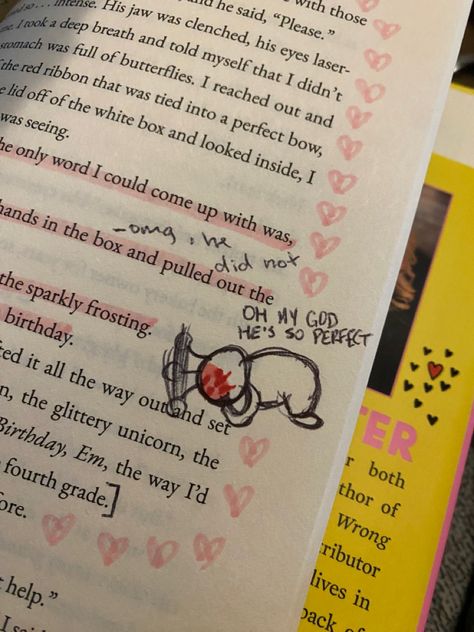 with those
and he said, "Please."
intense. His jaw was clenched, his eyes laser-
I took a deep breath and told myself that I didn't
stomach was full of butterflies. I reached out and
the red ribbon that was tied into a perfect bow,
lid off of the white box and looked inside, I
was seeing.
he only word I could come up with was,
-omg, he
did not
hands in the box and pulled out the
the sparkly frosting.
OH MY GOD
HE'S SO PERFECT
birthday.
ted it all the way out and set
n, the glittery unicorn, the
Birthday, Em, the way I'd
fourth grade.]
ore.
help."
I said
ER
r both
thor of
Wrong
tributor
lives in
pack of